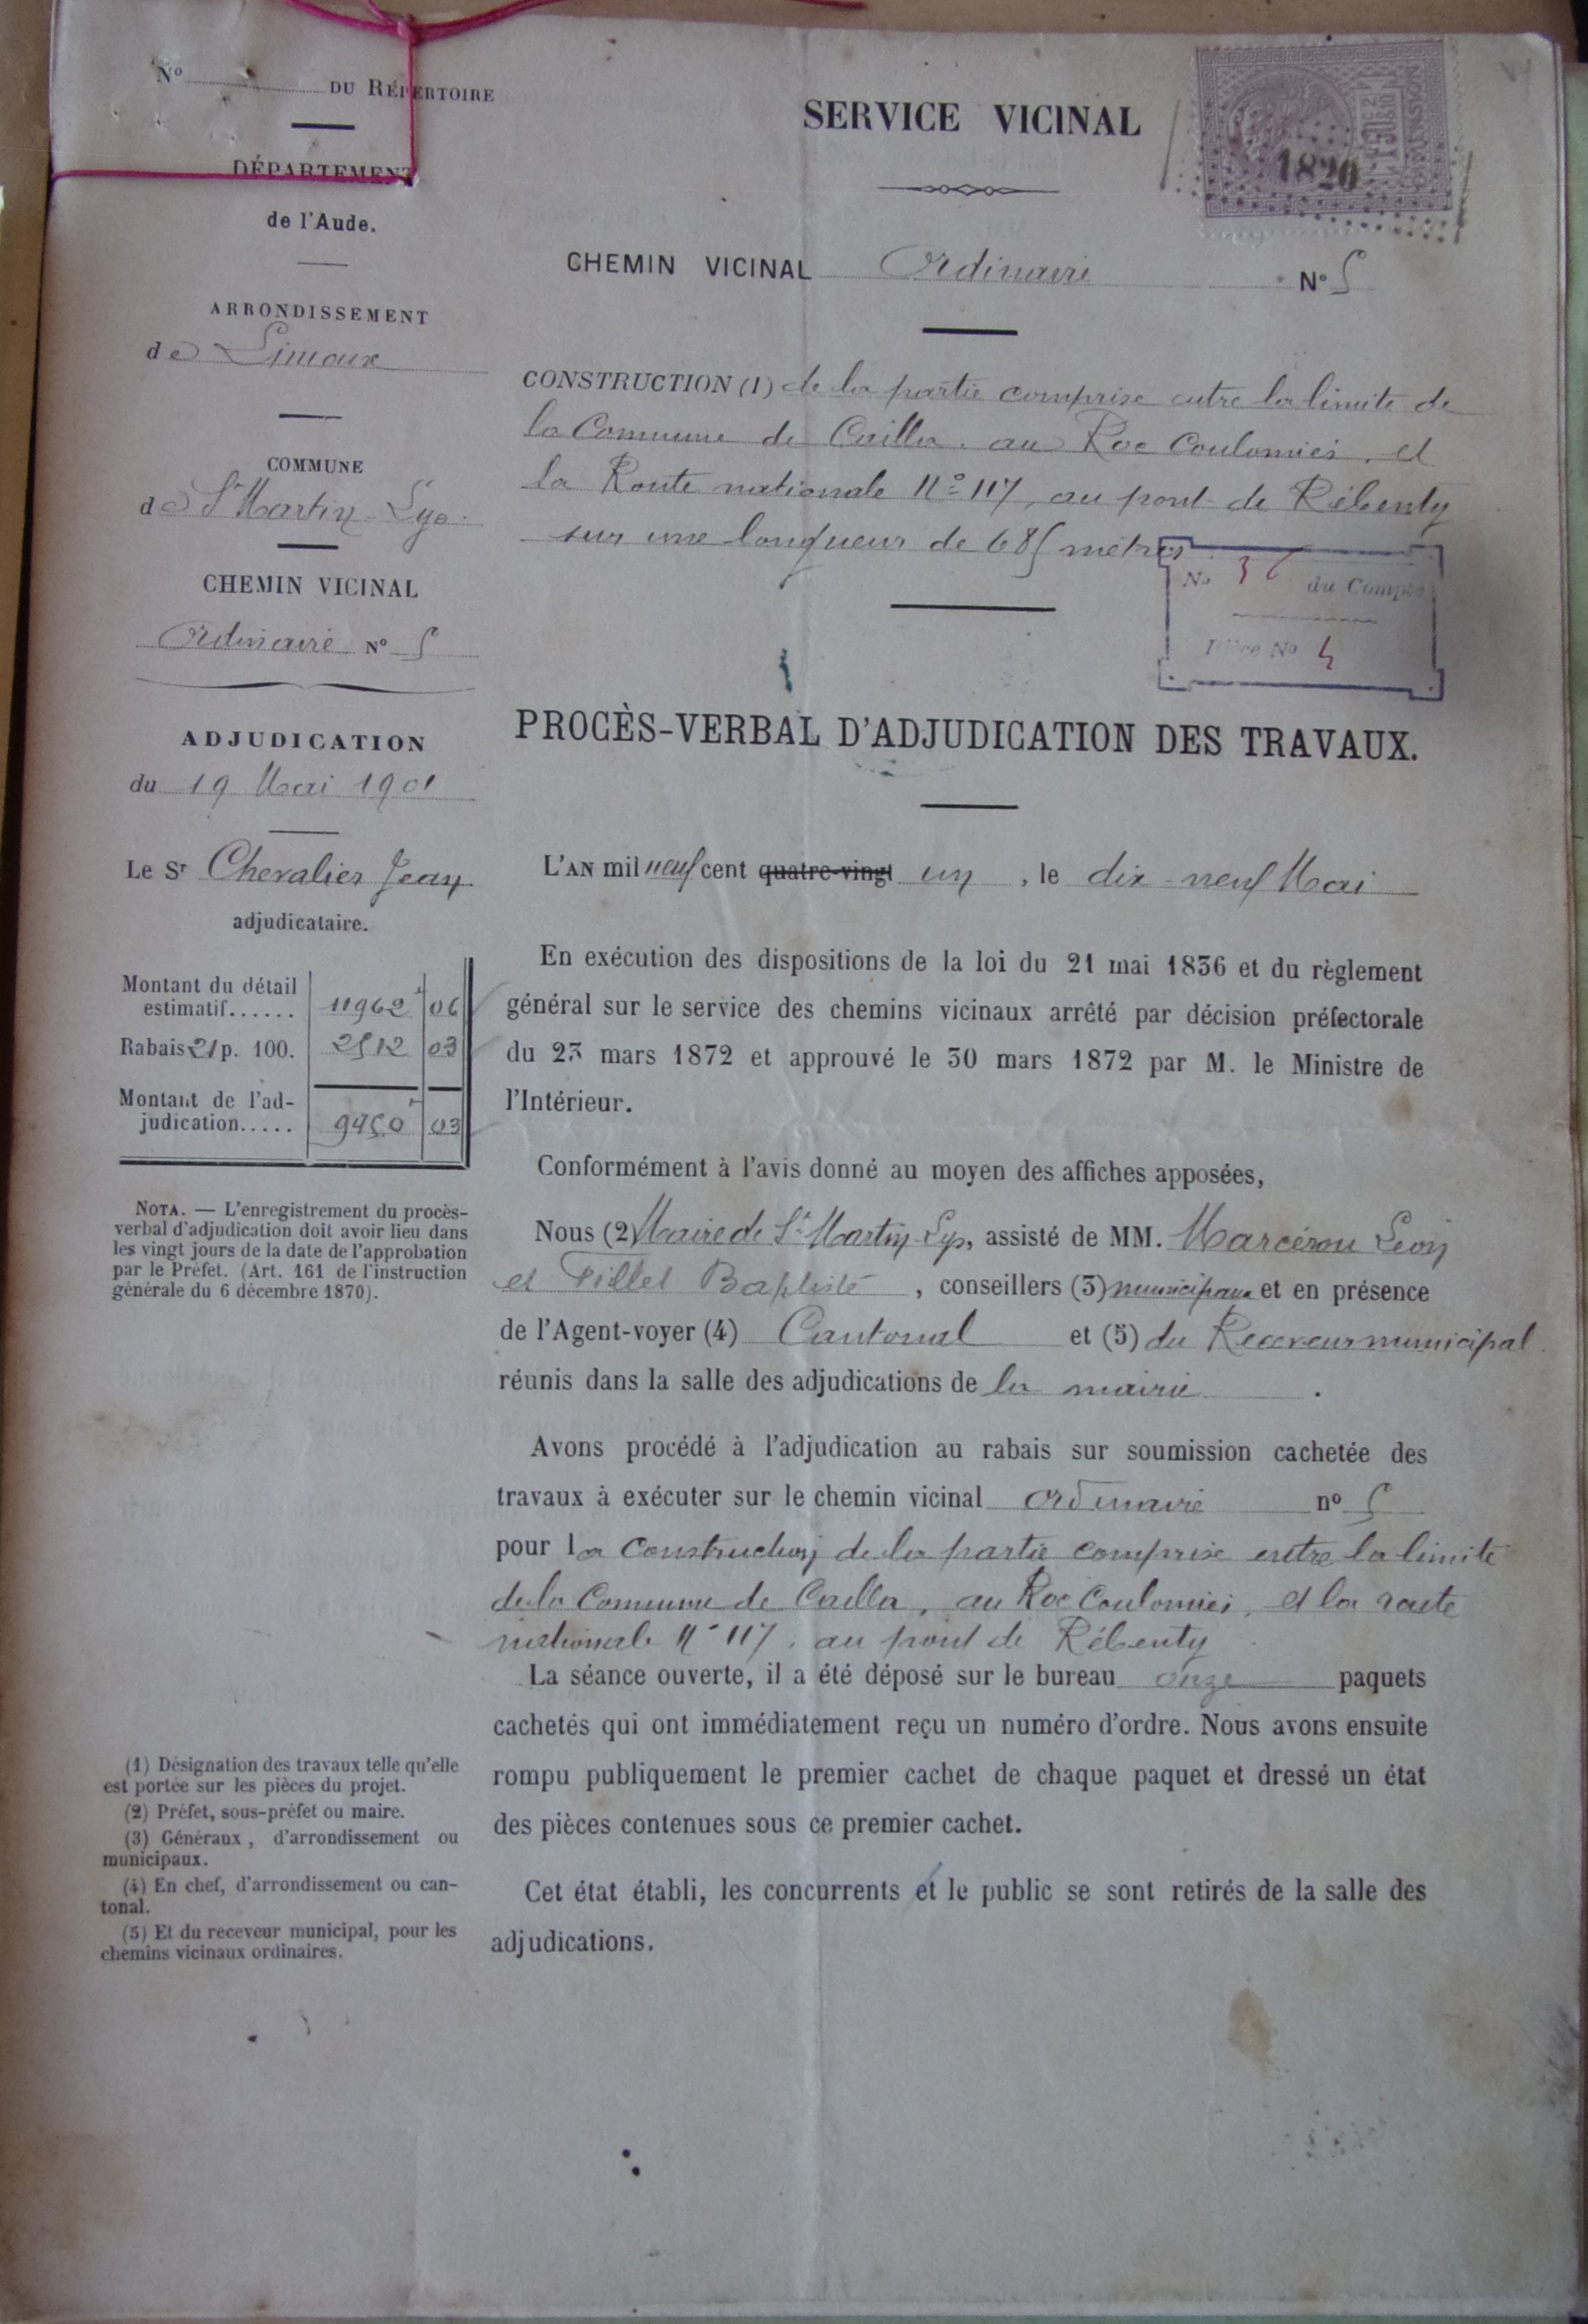 N° DU RÉPERTOIRE
DÉPARTEMENT
de l'Aude.
ARRONDISSEMENT
de Limoux
COMMUNE
de St Martin-Lys.
CHEMIN VICINAL
Ordinaire N° 5
ADJUDICATION
du 19 Mai 1901
Le Sr Chevalier Jean
adjudicataire.
Montant du détail
estimatif...... 11962 06
Rabais 21 p. 100. 2512 03
Montant de l'ad-
judication..... 9450 03
NOTA. — L'enregistrement du procès-
verbal d'adjudication doit avoir lieu dans
les vingt jours de la date de l'approbation
par le Préfet. (Art. 161 de l'instruction
générale du 6 décembre 1870).
(1) Désignation des travaux telle qu'elle
est portée sur les pièces du projet.
(2) Préfet, sous-préfet ou maire.
(3) Généraux, d'arrondissement ou
municipaux.
(4) En chef, d'arrondissement ou can-
tonal.
(5) Et du receveur municipal, pour les
chemins vicinaux ordinaires.
SERVICE VICINAL
1820
CHEMIN VICINAL Ordinaire N° 5
CONSTRUCTION (1) de la partie comprise entre la limite de
la Commune de Cailla, au Roc Coulomiés, et
la Route nationale N° 117, au pont de Rébenty
sur une longueur de 685 mètres
No 36 du Compte
Pièce No 4
PROCÈS-VERBAL D'ADJUDICATION DES TRAVAUX.
L'AN mil neuf cent quatre-vingt un, le dix-neuf Mai
En exécution des dispositions de la loi du 21 mai 1836 et du règlement
général sur le service des chemins vicinaux arrêté par décision préfectorale
du 23 mars 1872 et approuvé le 30 mars 1872 par M. le Ministre de
l'Intérieur.
Conformément à l'avis donné au moyen des affiches apposées,
Nous (2) Maire de St Martin-Lys, assisté de MM. Marcérou Léon
et Fillet Baptiste, conseillers (3) municipaux et en présence
de l'Agent-voyer (4) Cantonal et (5) du Receveur municipal
réunis dans la salle des adjudications de la mairie.
Avons procédé à l'adjudication au rabais sur soumission cachetée des
travaux à exécuter sur le chemin vicinal ordinaire n° 5
pour la construction de la partie comprise entre la limite
de la Commune de Cailla, au Roc Coulomiés, et la route
nationale N° 117, au pont de Rébenty
La séance ouverte, il a été déposé sur le bureau onze paquets
cachetés qui ont immédiatement reçu un numéro d'ordre. Nous avons ensuite
rompu publiquement le premier cachet de chaque paquet et dressé un état
des pièces contenues sous ce premier cachet.
Cet état établi, les concurrents et le public se sont retirés de la salle des
adjudications.